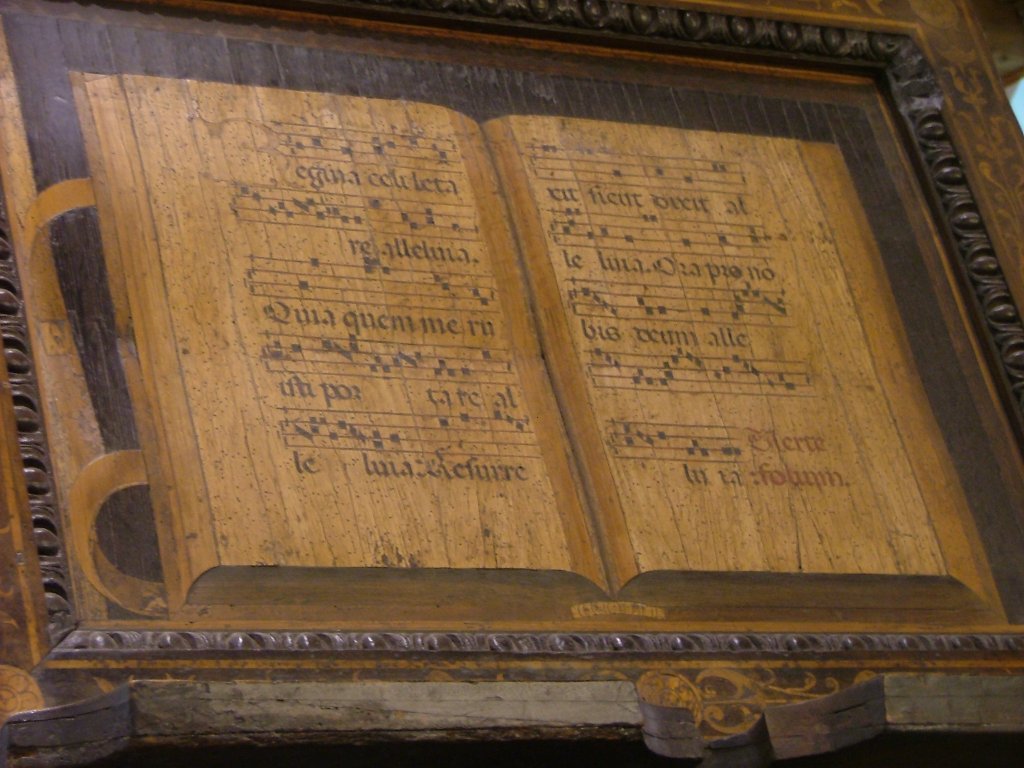 egina celi leta
re. alleluia.
Quia quem me ru
isti por ta re al
le luia. Resurre
xit sicut dixit al
le luia. Ora pro no
bis deum alle
Verte
lu ia folium.